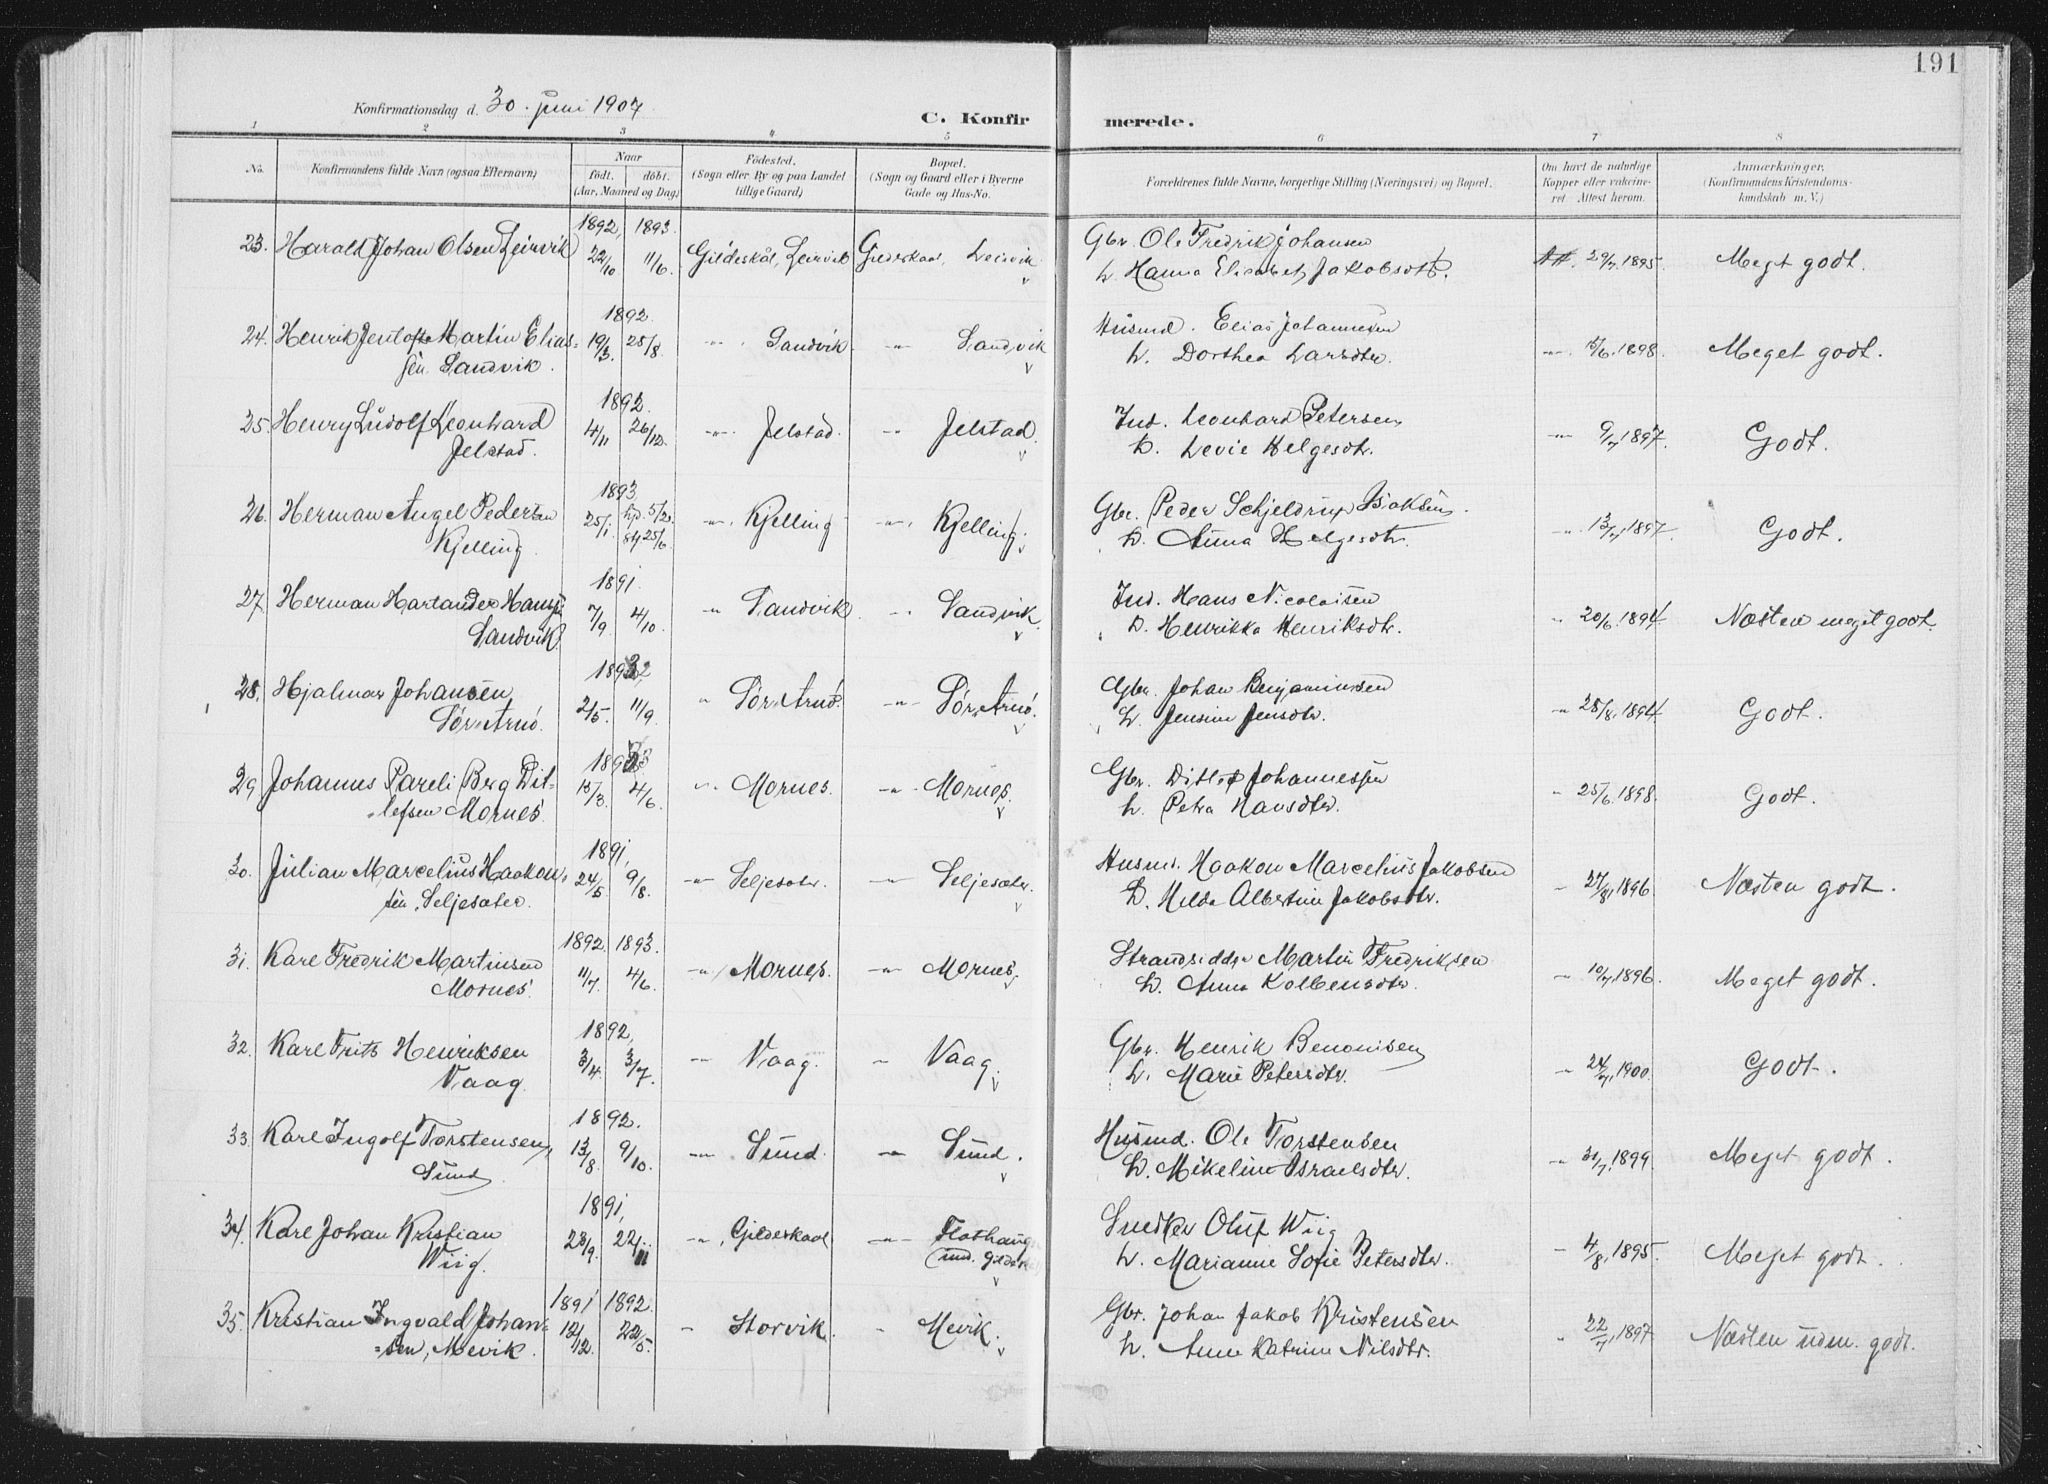 191
Konfirmationsdag d. 30. juni 1907
C. Konfirmerede.
1 2 3 4 5 6 7 8
No. Konfirmandens fulde Navn (ogsaa Efternavn) Naar født. døbt. (Aar, Maaned og Dag) Födested. (Sogn eller By og paa Landet tillige Gaard) Bopæl. (Sogn og Gaard eller i Byerne Gade og Hus-No. Forældrenes fulde Navne, borgerlige Stilling (Næringsvei) og Bopæl. Om havt de naturlige Kopper eller vakcineret Attest herom. Anmærkninger. (Konfirmandens Kristendomskundskab m. V.)
1892, 1893.
23. Harald Johan Olsen Leirvik 22/10 11/6. Gildeskål, Leirvik Gildeskaal, Leirvik Gbr. Ole Fredrik Johansen
h. Hanna Elisabet Jakobsdtr. 29/7 1895. Meget godt.
1892.
24. Henrik Jentofte Martin Elias= 19/3 28/8. -"- Sandvik -"- Sandvik Husmd. Elias Johannesen
sen Sandvik. h. Dorthea Larsdtr. -"- 15/6 1898. Meget godt.
1892.
25. Henry Ludolf Leonhard 4/11 26/12. -"- Jelstad. -"- Jelstad. Ind. Leonhard Petersen
Jelstad. h. Levie Helgesdtr. -"- 9/7 1897. Godt.
1893
26. Herman Angel Pedersen 25/1. hjd. 5/2. st 25/6 -"- Kjelling -"- Kjelling. Gbr. Peder Schjeldrup Isaksen.
Kjelling. h. Anna Helgesdtr. -"- 13/7 1897. Godt.
1891.
27. Herman Hartander Hans. 7/9. 4/10. " Sandvik -"- Sandvik. Ind. Hans Nicolaisen
Sandvik. h. Henrikka Henriksdtr. " 20/6 1894. Næsten meget godt.
1892
28. Hjalmar Johansen 2/5. 11/9. " Sör-Arnö. -"- Sör-Arnö. Gbr. Johan Benjaminsen
Sör-Arnö. h. Jensine Jensdtr. " 28/8 1894. Godt.
1893
29 Johannes Pareli Berg Dit= 15/3. 4/6. -"- Mornes. -"- Mornes. Gbr. Ditlef Johannessen
=lefsen Mornes. h. Petra Hansdtr. " 25/6 1898. Godt.
1891,
30. Julian Marcelius Haakon= 24/5 9/8. -"- Seljesæter. -"- Seljesæter. Husmd. Haakon Marcelius Jakobsen
sen, Seljesæter. h. Hilda Albertine Jakobsdtr. " 27/8 1896. Næsten godt.
1892. 1893.
31. Karl Fredrik Martinsen 11/7. 4/6. -"- Mornes. -"- Mornes. Strandsidder Martin Fredriksen
Mornes. h. Anna Kolbensdtr. -"- 10/7 1896. Meget godt.
1892,
32. Karl Frits Henriksen 3/4. 3/7. -"- Vaag. -"- Vaag. Gbr. Henrik Benonisen
Vaag. h. Marie Petersdtr. -"- 24/7 1900. Godt.
1892.
33. Karl Ingolf Torstensen, 13/8. 9/10. -"- Sund. -"- Sund. Husmd. Ole Torstensen
Sund h. Mikeline Israelsdtr. -"- 31/7 1899. Meget godt.
1891,
34. Karl Johan Kristian 23/9. 22/11 -"- Gildeskaal -"- Flothaug Snedker Oluf Wiig
Wiig. h. Marianne Sofie Petersdtr. - 4/8 1895. Meget godt.
1891 1892.
35. Kristian Ingvald Johan= 12/12. 22/5. - Storvik. - Mevik. Gbr. Johan Jakob Kristensen
=sen, Mevik. h. Anne Katrine Nilsdtr. " 22/7 1897 Næsten udm. godt.